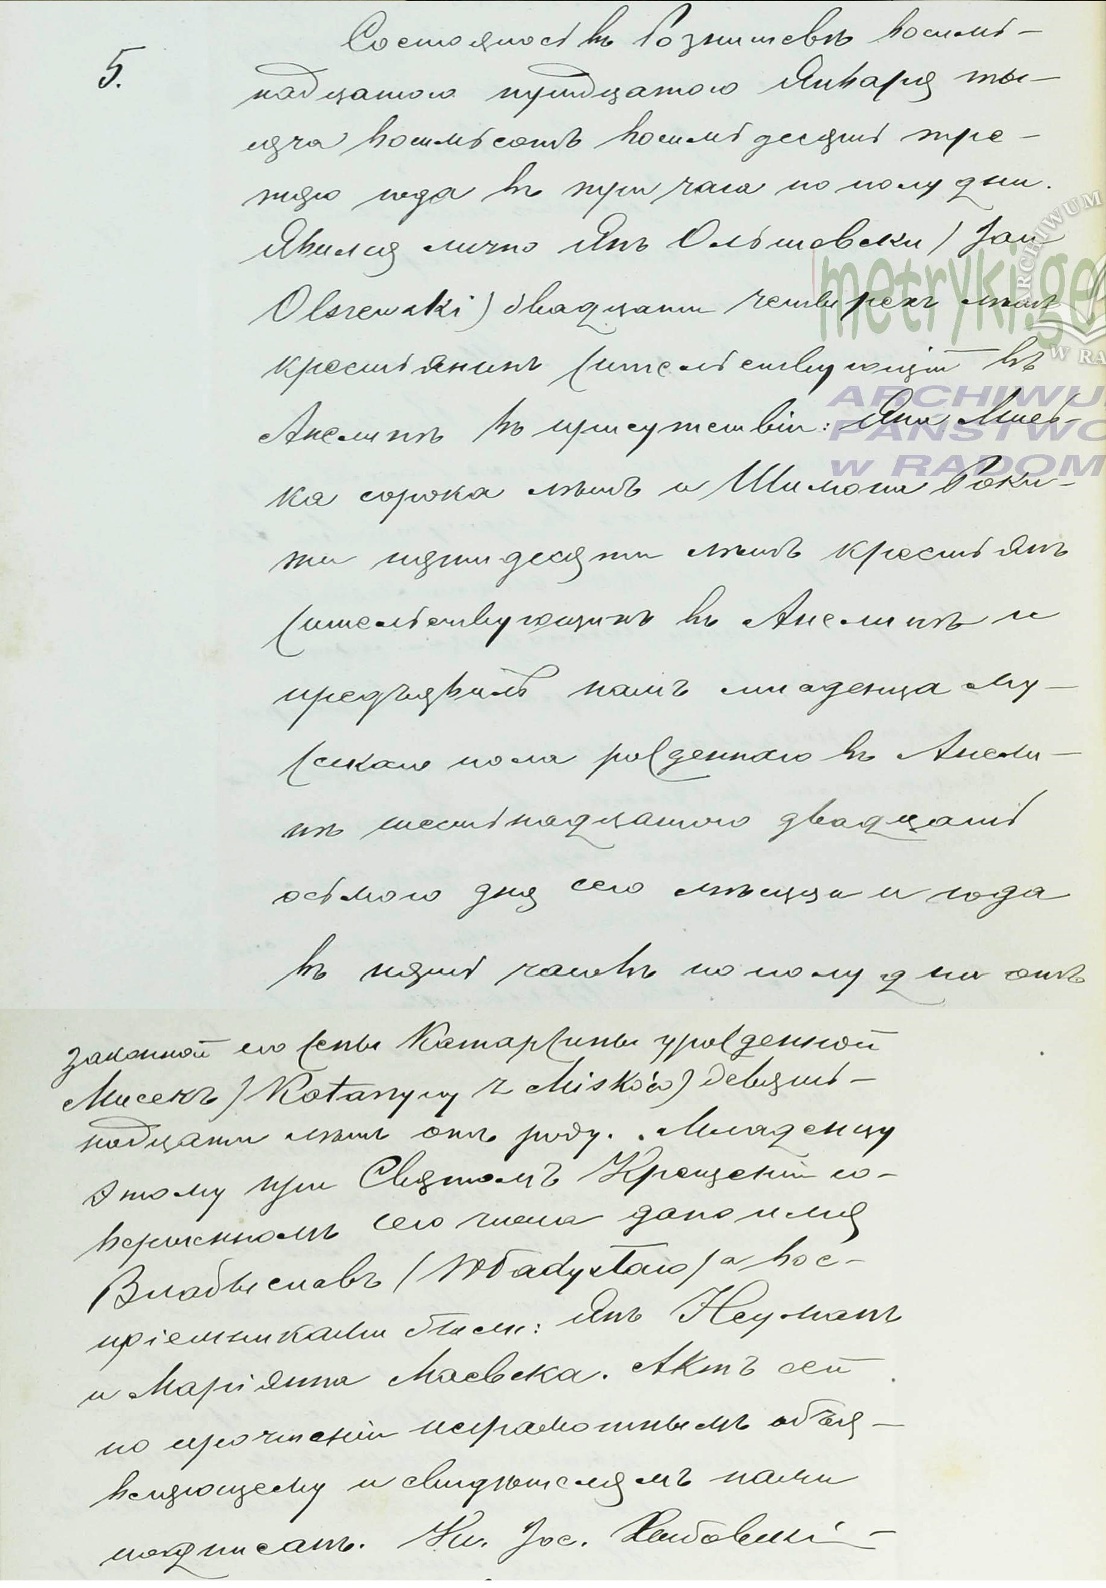 5.
Состоялось въ Рознишевѣ восемь-
надцатого тридцатого Января ты-
сяча восемьсотъ восемьдесятъ тре-
тяго года въ три часа по полу дни.
Явился лично Янъ Ольшовски (Jan
Olszewski) двадцати четырехъ лѣтъ
крестьянинъ жительствующій въ
Анелинѣ въ присутствіи: Яна Мись-
ка сорока лѣтъ и Шимона Роки-
ти пятидесяти лѣтъ крестьянъ
жительствующихъ въ Анелинѣ и
предъявилъ намъ младенца му-
жскаго пола рожденнаго въ Анели-
нѣ шестьнадцатого двадцать
осьмого дня сего мѣсяца и года
въ пять часовъ по полу дни отъ
законной его жены Катаржины урожденной
Мисекъ (Katarzyny z Misków) девять-
надцати лѣтъ отъ роду. Младенцу
этому при Святомъ Крещеніи со-
вершенномъ сего числа дано имя
Владыславъ (Władysław) а вос-
пріемниками были: Янъ Нейманъ
и Маріянна Маевска. Актъ сей
по прочтеніи неграмотнымъ объя-
вляющему и свидѣтелямъ нами
подписанъ. Кс. Јос.
metryki.ge
ARCHIWUM
W RA
ARCHIWU
PAŃSTWO
w RADOM